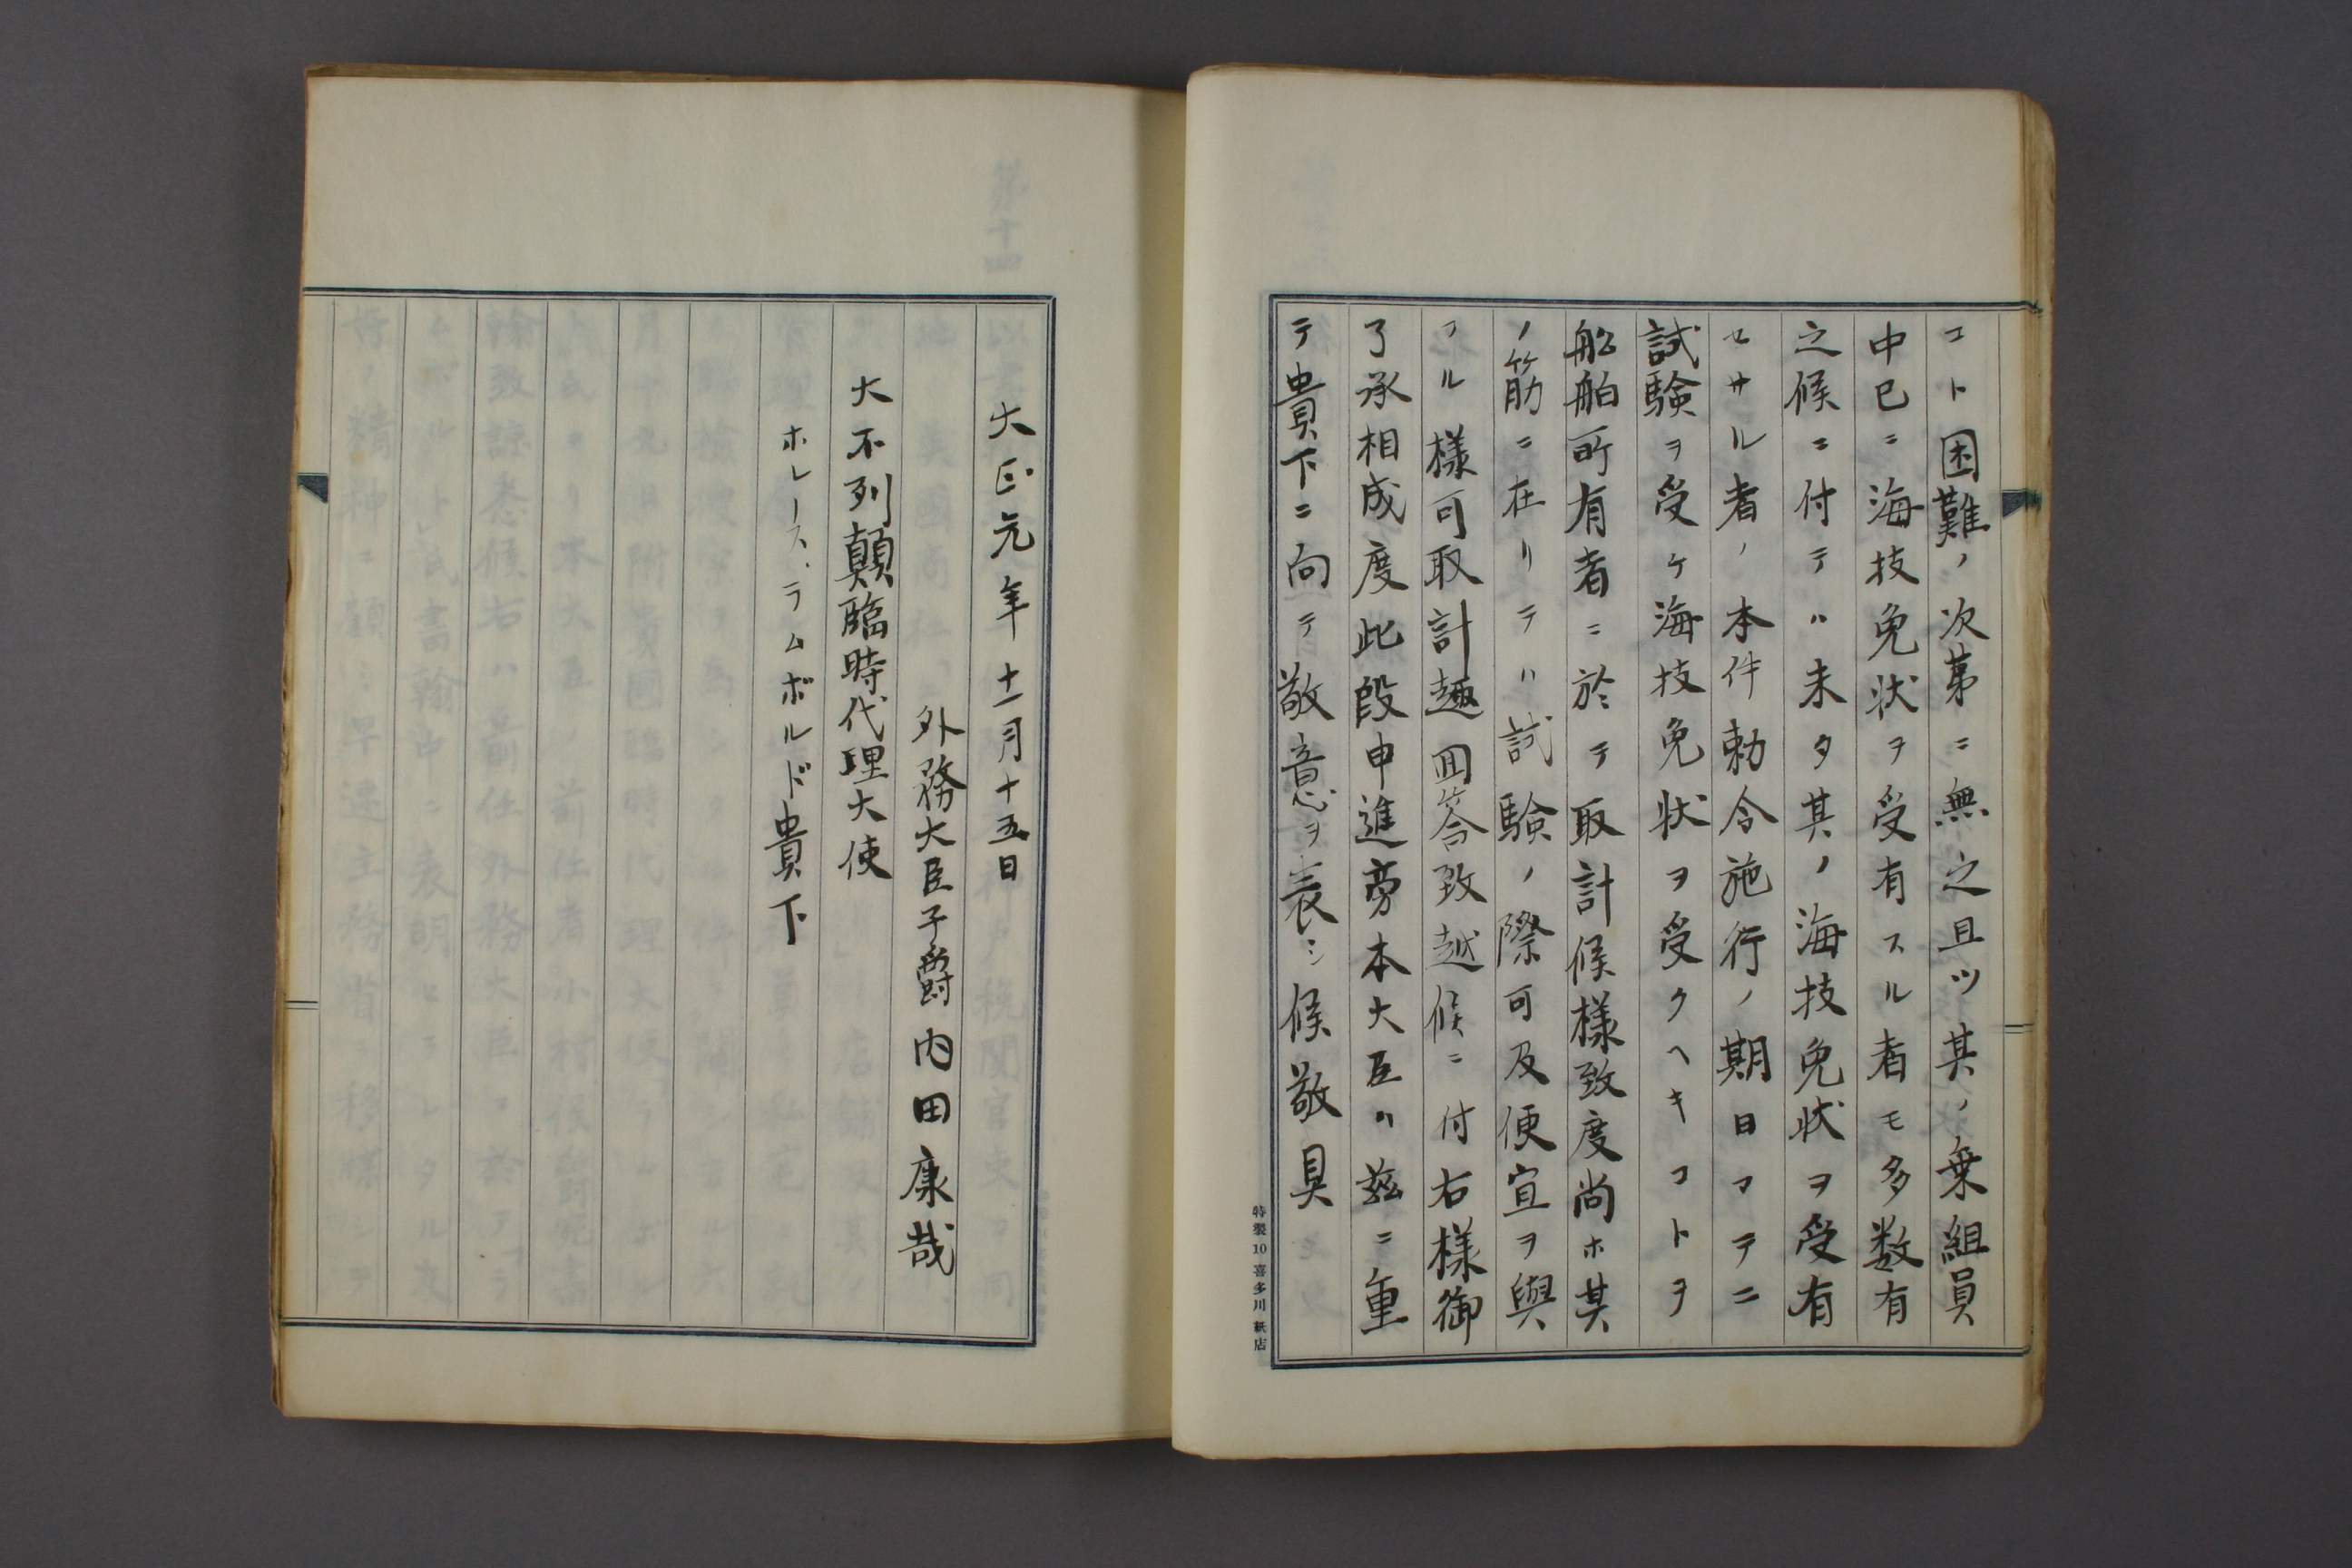 コト困難ノ次第ニ無之且ツ其ノ乗組員
中已ニ海技免状ヲ受有スル者モ多数有
之候ニ付テハ未タ其ノ海技免状ヲ受有
セサル者ノ本件勅令施行ノ期日マテニ
試験ヲ受ケ海技免状ヲ受クヘキコトヲ
船舶所有者ニ於テ取計候様致度尚ホ其
ノ筋ニ在リテハ試験ノ際可及便宜ヲ與
フル様可取計趣回答致越候ニ付右様御
了承相成度此段申進旁本大臣ハ茲ニ重
テ貴下ニ向テ敬意ヲ表シ候敬具
特製10喜多川紙店
大正元年十一月十五日
外務大臣子爵内田康哉
大不列顛臨時代理大使
ホレース、ラムボルド貴下